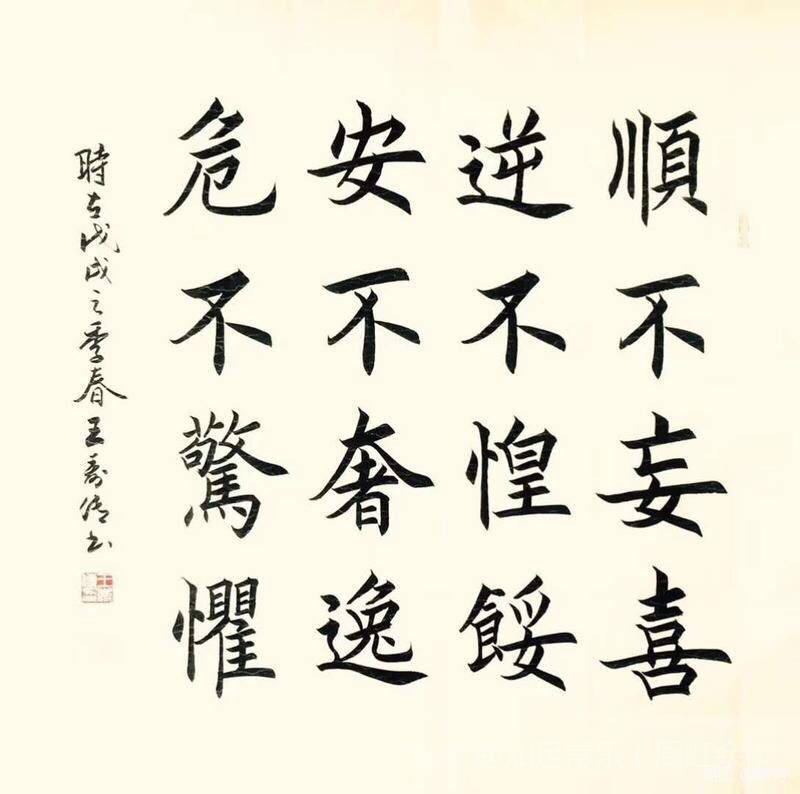 順不妄喜
逆不惶餒
安不奢逸
危不驚懼
時在戊戌之季春王壽書